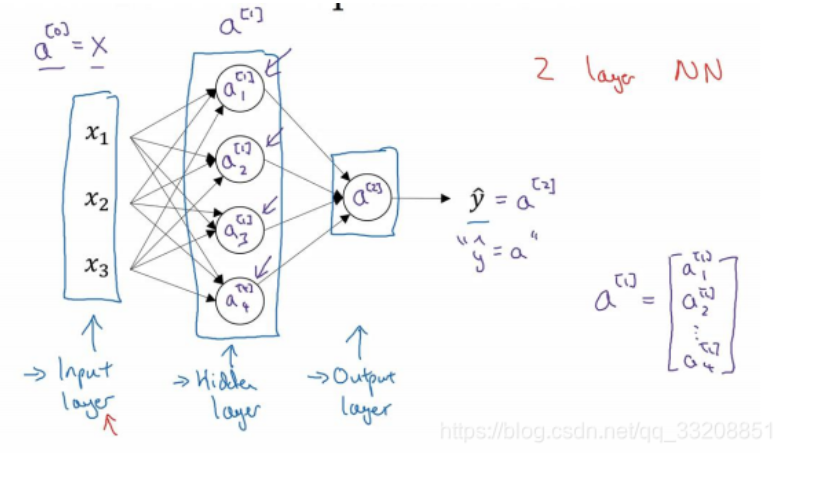 a^[1]
a^[0] = X
2 layer NN
x₁
x₂
x₃
a₁^[1]
a₂^[1]
a₃^[1]
a₄^[1]
a^[2]
ŷ = a^[2]
"ŷ = a"
a^[1] = [a₁^[1]
a₂^[1]
⋮
a₄^[1]]
→ Input
layer
→ Hidden
layer
→ Output
layer
https://blog.csdn.net/qq_33208851